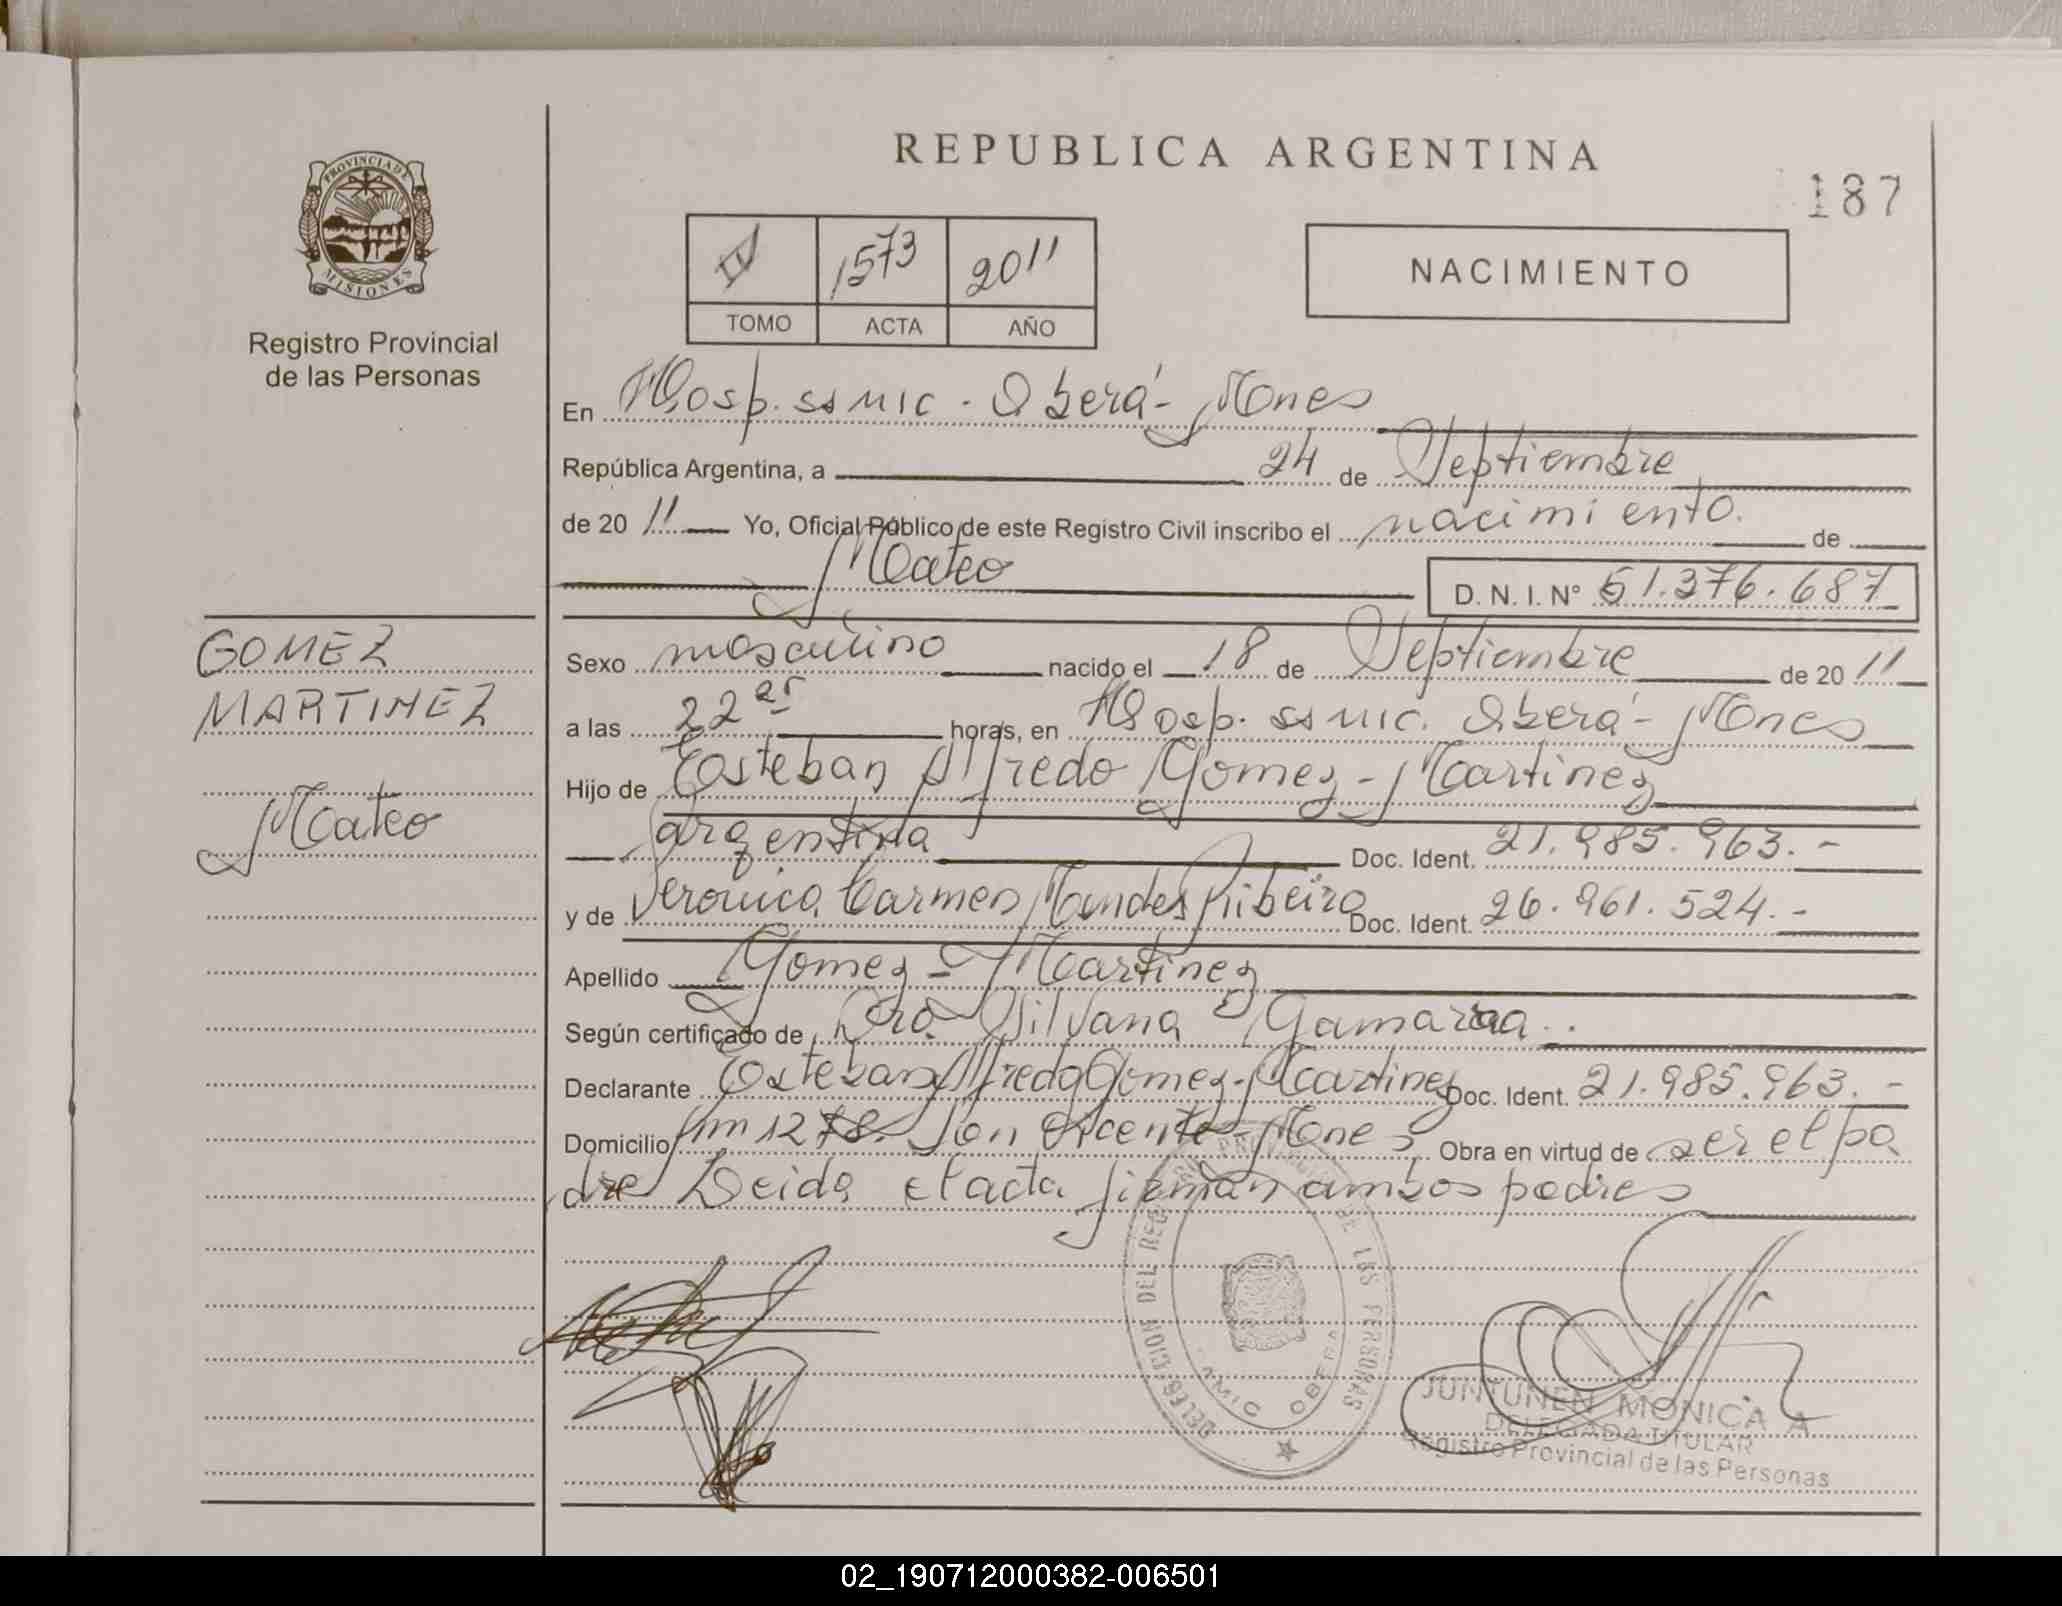 PROVINCIA DE
MISIONES
Registro Provincial
de las Personas
REPUBLICA ARGENTINA
187
IV 1573 2011
TOMO ACTA AÑO
NACIMIENTO
En Hosp. ss MIC - Oberá - Mnes
República Argentina, a 24 de Septiembre
de 20 11 Yo, Oficial Público de este Registro Civil inscribo el nacimiento. de
Mateo
D. N. I. N° 51.376.687
GOMEZ
MARTINEZ
Mateo
Sexo masculino nacido el 18 de Septiembre de 20 11
a las 22 horas, en Hosp. ss MIC. Oberá - Mnes
Hijo de Esteban Alfredo Gomez - Martinez
argentina Doc. Ident. 21.985.963.-
y de Veronica Carmen Mendes Ribeiro Doc. Ident. 26.961.524.-
Apellido Gomez - Martinez
Según certificado de Dra. Silvana Gamarra.
Declarante Esteban Alfredo Gomez - Martinez Doc. Ident. 21.985.963.-
Domicilio Km 1278. San Vicente - Mnes Obra en virtud de ser el pa
dre Leida el acta firman ambos padres
DELEGACION DEL REGISTRO PROVINCIAL DE LAS PERSONAS
SAMIC OBERA
JUNTUNEN MONICA A
DELEGADA TITULAR
Registro Provincial de las Personas
02_190712000382-006501